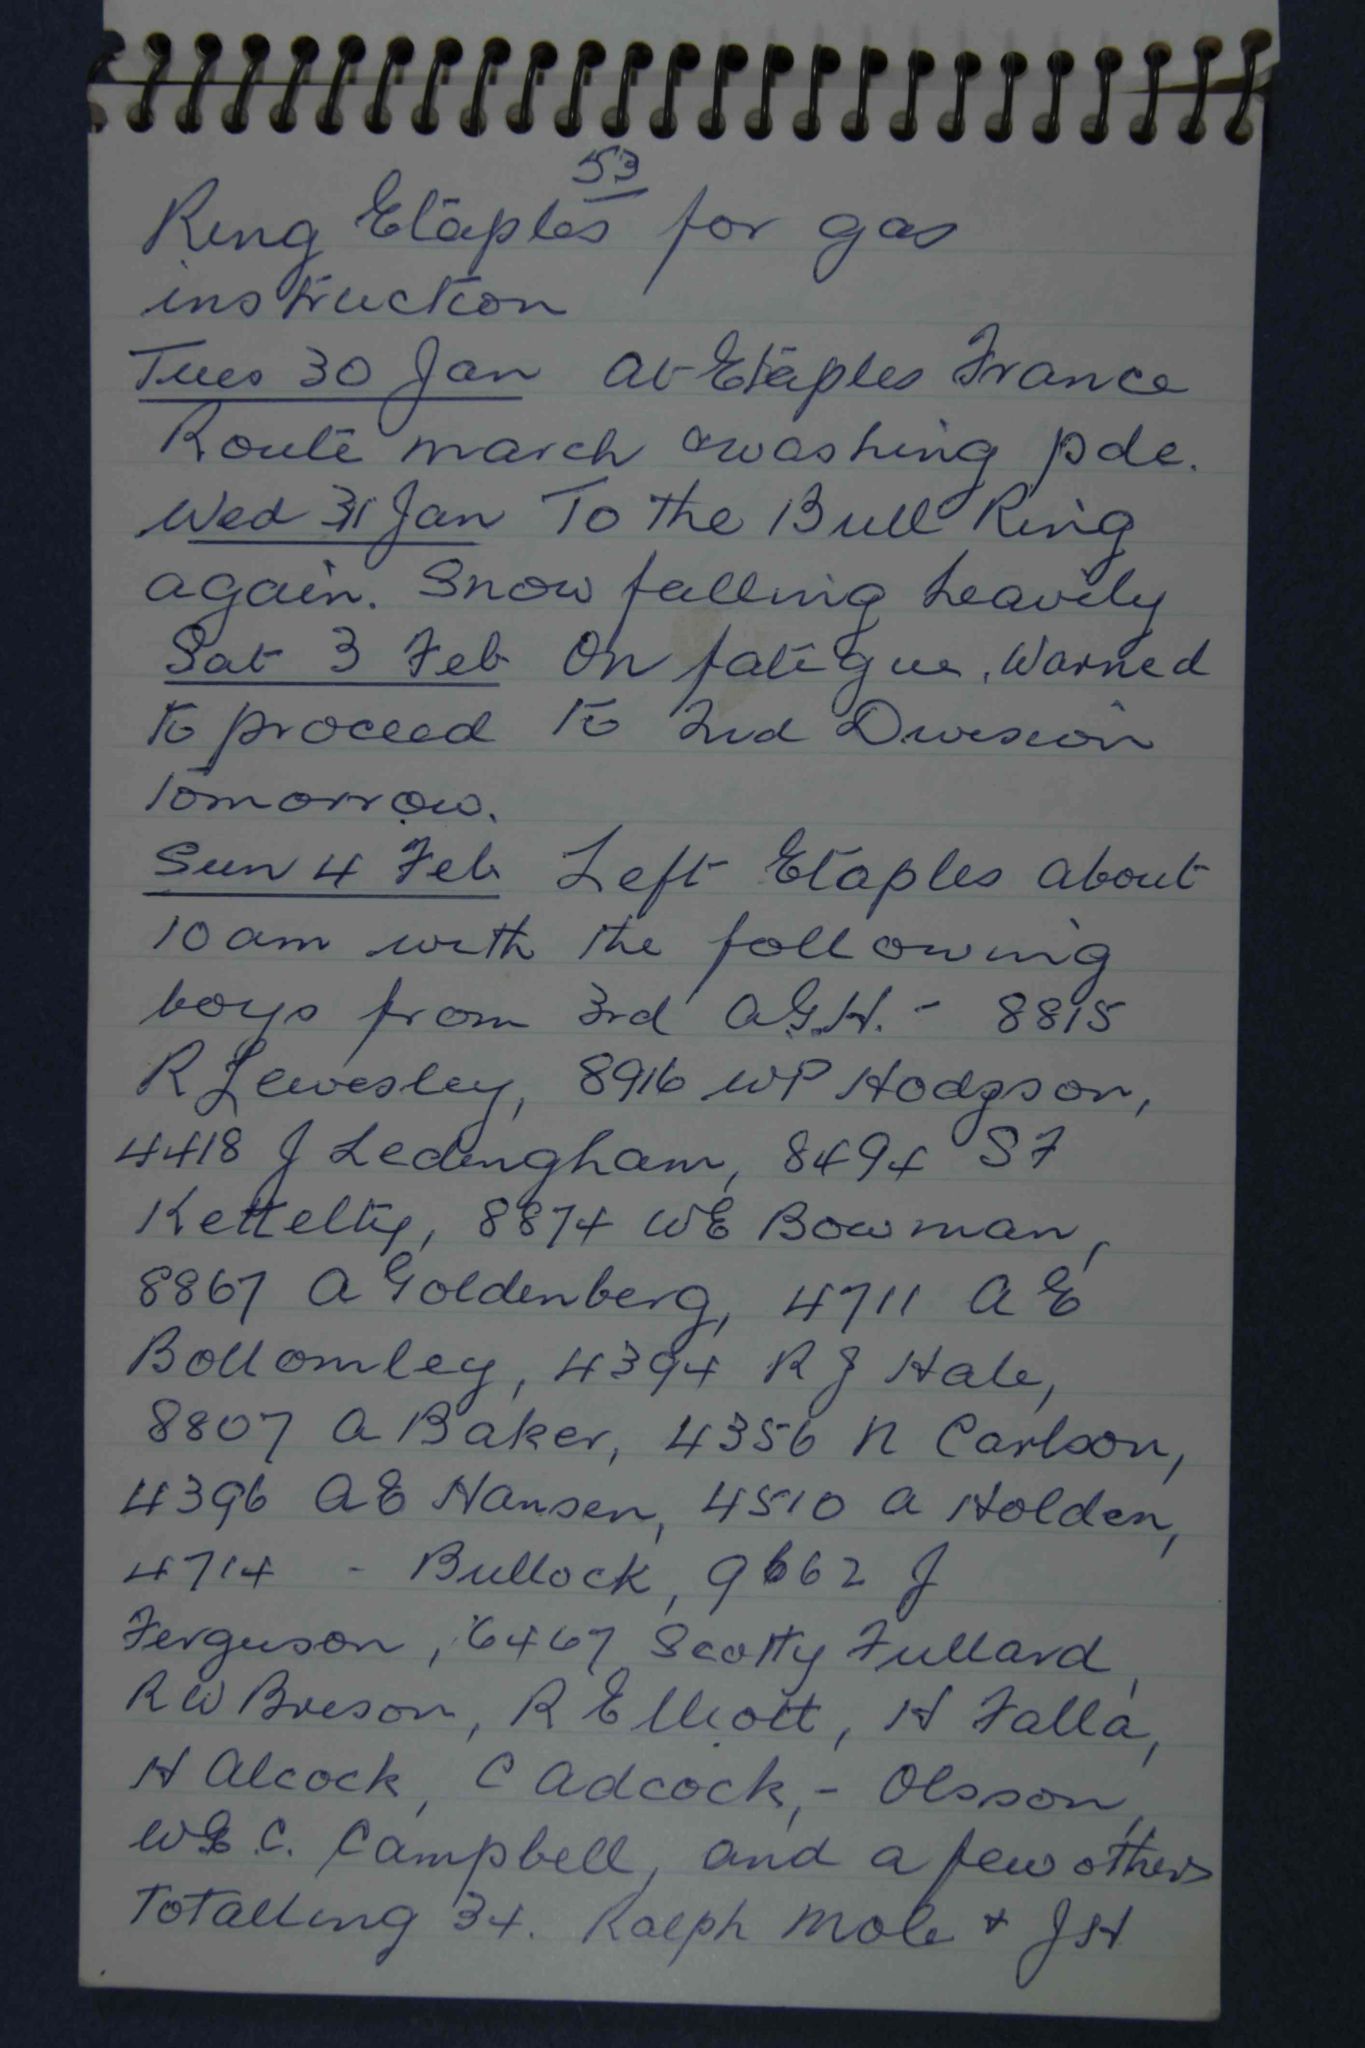 53
Ring Etaples for gas
instruction
Tues 30 Jan At Etaples France
Route march & washing pde.
Wed 31 Jan To the Bull Ring
again. Snow falling heavily
Sat 3 Feb On fatigue. Warned
to proceed to 2nd Division
tomorrow.
Sun 4 Feb Left Etaples about
10 am with the following
boys from 3rd A.G.H. - 8815
R Lewesley, 8916 WP Hodgson,
4418 J Ledingham, 8494 S F
Kettelty, 8874 WE Bowman,
8867 A Goldenberg, 4711 A E
Bottomley, 4394 R J Hale,
8807 A Baker, 4356 N Carlson,
4396 AE Hansen, 4510 A Holden,
4714 - Bullock, 9662 J
Ferguson, 6467 Scotty Fullard,
R W Breson, R Elliott, H Falla,
H Alcock, C Adcock, - Olsson,
W.E.C. Campbell, and a few others
Totalling 34. Ralph Mole & JH